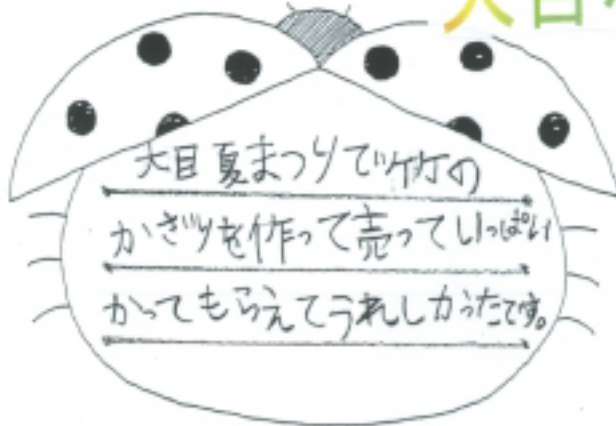 大目夏まつりで竹の
かざりを作って売っていっぱい
かってもらえてうれしかったです。